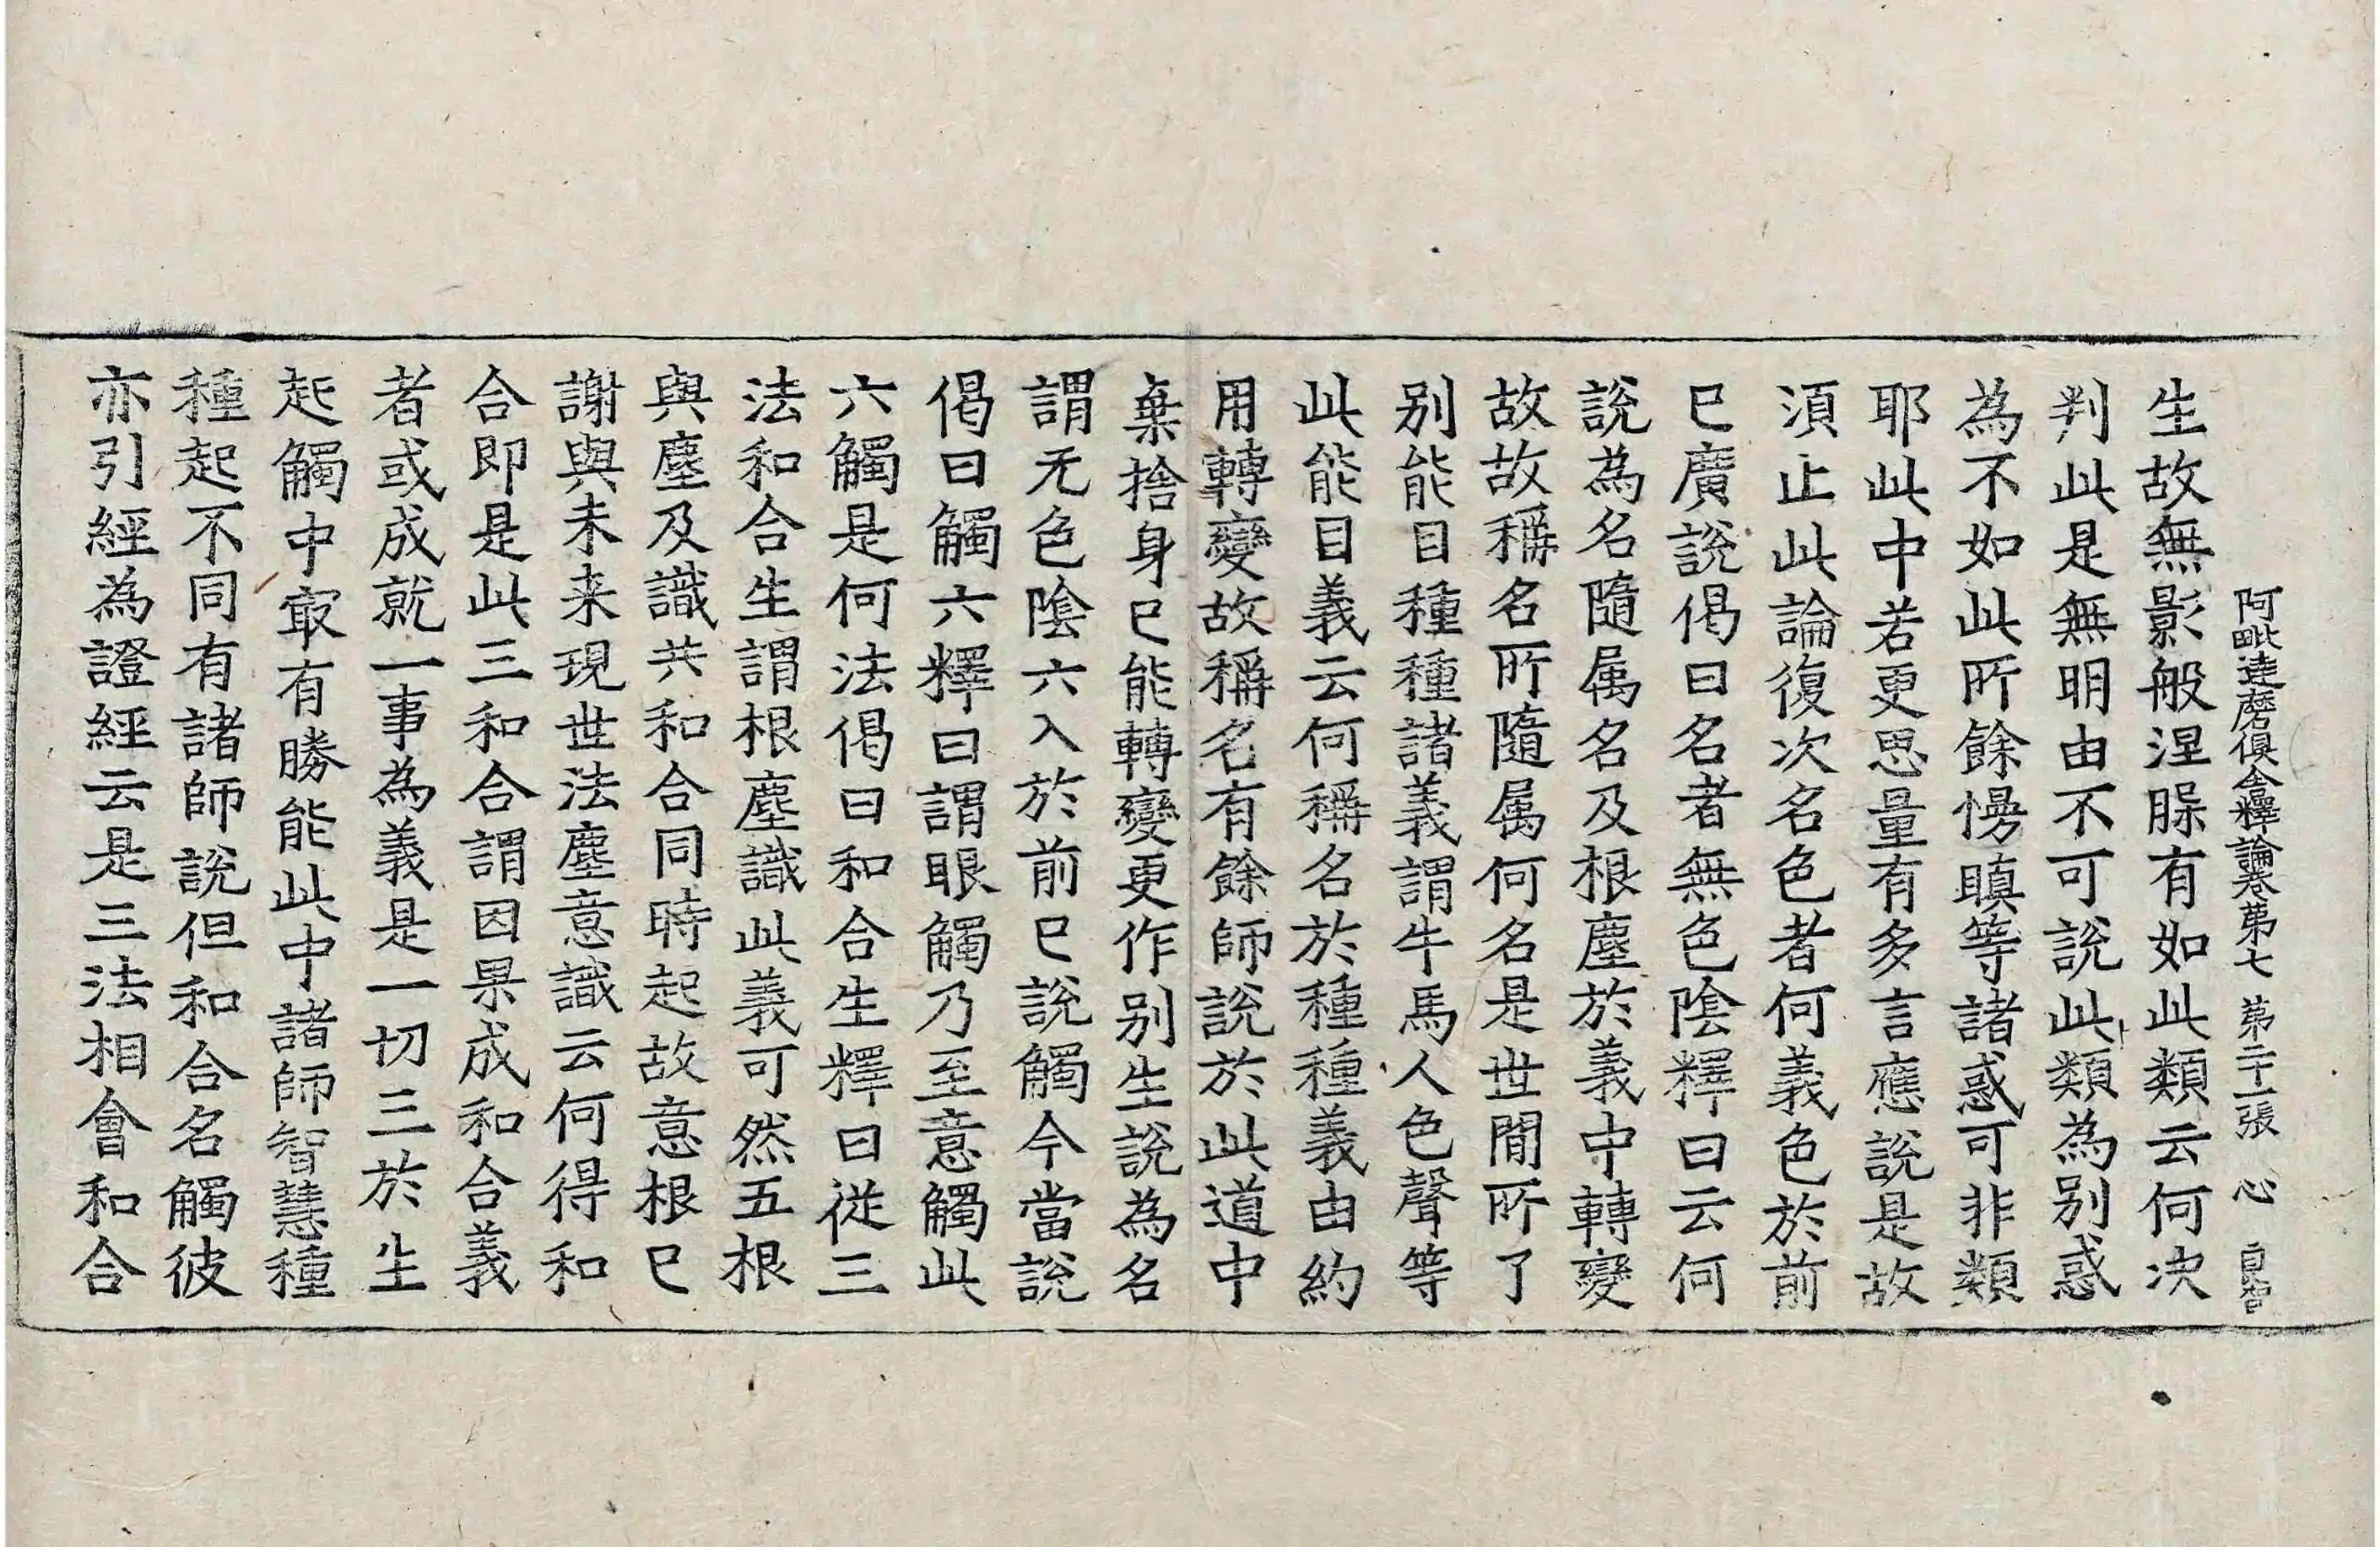 阿毗達磨俱舍釋論卷第七 第二十一張 心
生故無影般涅脲有如此類云何决
判此是無明由不可說此類為別惑
為不如此所餘慢瞋等諸惑可非類
耶此中若更思量有多言應說是故
湏止此論復次名色者何義色於前
已廣說偈曰名者無色陰釋曰云何
說為名隨属名及根塵於義中轉變
故故稱名所隨属何名是世間所了
别能目種種諸義謂牛馬人色聲等
此能目義云何稱名於種種義由約
用轉變故稱名有餘師說於此道中
棄捨身已能轉變更作别生說為名
謂无色陰六入於前已說觸今當說
偈曰觸六釋曰謂眼觸乃至意觸此
六觸是何法偈曰和合生釋曰從三
法和合生謂根塵識此義可然五根
與塵及識共和合同時起故意根已
謝與未来現世法塵意識云何得和
合即是此三和合謂因果成和合義
者或成就一事為義是一切三於生
起觸中㝡有勝能此中諸師智慧種
種起不同有諸師說但和合名觸彼
亦引經為證經云是三法相會和合